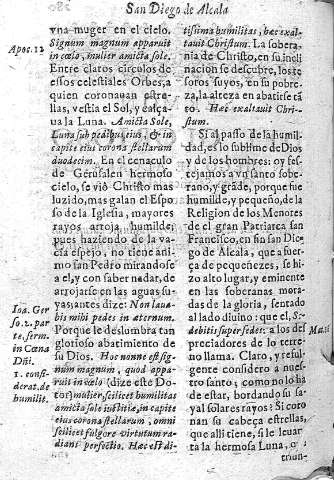 San Diego de Alcala
vna muger en el cielo.
Apoc. 12
Signum magnum apparuit
in cœlo, mulier amicta sole.
Entre claros circulos de
essos celestiales Orbes, a
quien coronauan estre-
llas, vestia el Sol, y calça-
ua la Luna. Amicta Sole,
Luna sub pedibus eius, & in
capite eius corona stellarum
duodecim. En el cenaculo
de Gerusalen hermoso
cielo, se viò Christo mas
luzido, mas galan el Espo
so de la Iglesia, mayores
rayos arroja, humilde;
pues haziendo de la va-
cia espejo, no tiene ani-
mo san Pedro mirandose
a el, y con saber nadar, de
arrojarse en las aguas su-
yas, antes dize: Non laua-
bis mihi pedes in æternum.
Ioa. Ger
so. 2. par
te, serm.
in Cœna
Dñi.
1. consi-
derat. de
humilit.
Porque le deslumbra tan
glorioso abatimiento de
su Dios. Hoc nonne est sig-
num magnum, quod appa-
ruit in cœlo (dize este Do-
tor) mulier, scilicet humilitas
amicta sole iustitiæ, in capite
eius corona stellarum, omni
scilicet fulgore virtutum ra-
diant perfectio. Hæc est di-
tissima humilitas, hæc exal-
tauit Christum. La sobera-
nia de Christo, en su incli
nacion se descubre, los te-
soros suyos, en su pobre-
za, la alteza en abatirse tã
to. Hæc exaltauit Chri-
stum.
Si al passo de la humil-
dad, es lo sublime de Dios
y de los hombres: oy fes-
tejamos a vn santo sobe-
rano, y grãde, porque fue
humilde, y pequeño, de la
Religion de los Menores
de el gran Patriarca san
Francisco, en sin san Die-
go de Alcala, que a fuer-
ça de pequeñezes, se hi-
zo alto lugar, y eminente
en las soberanas mora-
das de la gloria, sentado
al lado diuino: que el, S.
debitis super sedes: a los des
preciadores de lo terre-
no llama. Claro, y reful-
gente considero a nues-
tro santo; como no lo ha
de estar, bordando su sa-
yal solares rayos? Si coro
nan su cabeça estrellas,
que alli tiene, si le leuan
ta la hermosa Luna, o
triun-